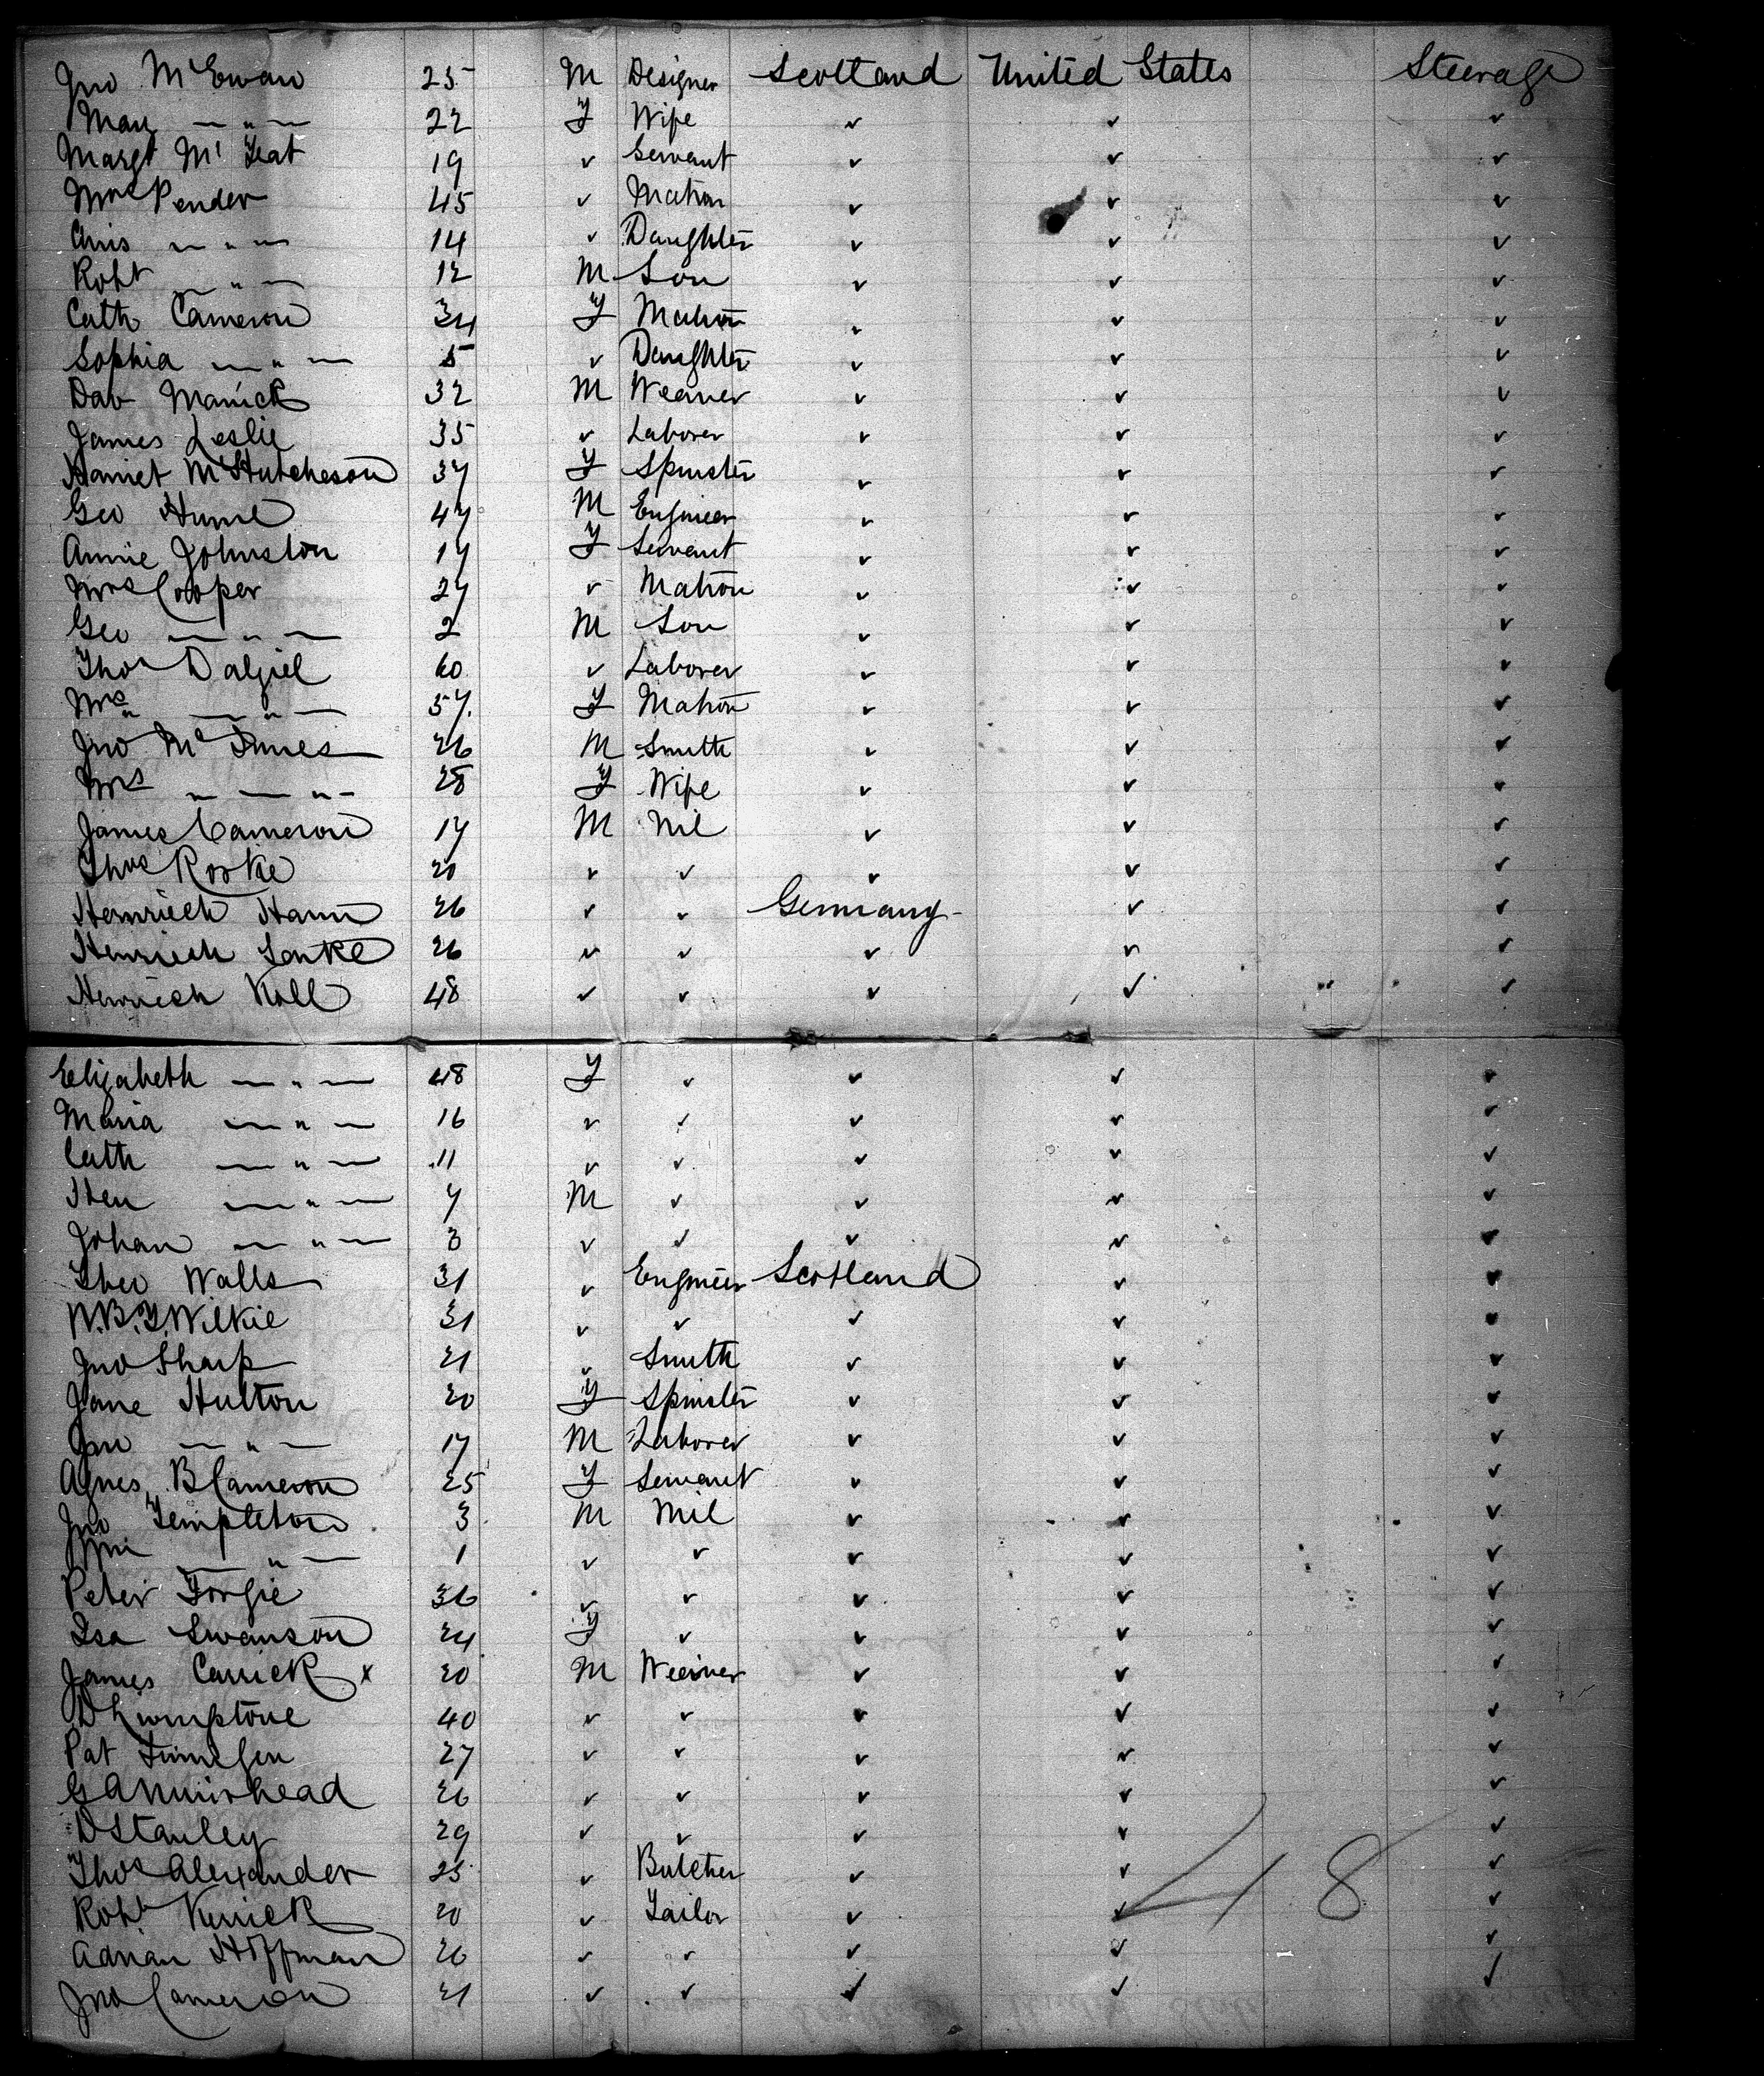 Jno McEwan 25 M Designer Scotland United States Steerage
Mary — " — 22 F Wife ✓ ✓ ✓
Margt Mc 19 ✓ Servant ✓ ✓ ✓
Mrs Pender 45 ✓ Matron ✓ ✓ ✓
Chris — " — 14 ✓ Daughter ✓ ✓ ✓
Robt — " — 12 M Son ✓ ✓ ✓
Cath Cameron 34 F Matron ✓ ✓ ✓
Sophia — " — 5 ✓ Daughter ✓ ✓ ✓
Dav 32 M Weaver ✓ ✓ ✓
James Leslie 35 ✓ Laborer ✓ ✓ ✓
Harriet McHutcheson 37 F Spinster ✓ ✓ ✓
Geo Hume 47 M Engineer ✓ ✓ ✓
Annie Johnston 17 F Servant ✓ ✓ ✓
Mrs Cooper 27 ✓ Matron ✓ ✓ ✓
Geo — " — 2 M Son ✓ ✓ ✓
Thos Dalziel 60 ✓ Laborer ✓ ✓ ✓
Mrs " — " — 57 F Matron ✓ ✓ ✓
Jno McInnes 26 M Smith ✓ ✓ ✓
Mrs " — " - 28 F Wife ✓ ✓ ✓
James Cameron 17 M Nil ✓ ✓ ✓
Thos Rorke 20 ✓ ✓ ✓ ✓ ✓
Heinrich Hann 26 ✓ ✓ Germany ✓ ✓
Heinrich 26 ✓ ✓ ✓ ✓ ✓
Heinrich Koll 48 ✓ ✓ ✓ ✓ ✓
Elizabeth — " — 48 F ✓ ✓ ✓ ✓
Maria — " — 16 ✓ ✓ ✓ ✓ ✓
Cath — " — 11 ✓ ✓ ✓ ✓ ✓
Hen — " — 7 M ✓ ✓ ✓ ✓
Johan — " — 3 ✓ ✓ ✓ ✓ ✓
Theo Walls 31 ✓ Engineer Scotland ✓ ✓
W.B.Y. Wilkie 31 ✓ ✓ ✓ ✓ ✓
Jno Sharp 21 ✓ Smith ✓ ✓ ✓
Jane Hutton 20 F Spinster ✓ ✓ ✓
Jno — " — 17 M Laborer ✓ ✓ ✓
Agnes B Cameron 25 F Servant ✓ ✓ ✓
Jno Templeton 3 M Nil ✓ ✓ ✓
Wm — " — 1 ✓ ✓ ✓ ✓ ✓
Peter Forgie 36 ✓ ✓ ✓ ✓ ✓
Isa Swanson 24 F ✓ ✓ ✓ ✓
James Carrick x 20 M Weaver ✓ ✓ ✓
D Limpstone 40 ✓ ✓ ✓ ✓ ✓
Pat Finnegen 27 ✓ ✓ ✓ ✓ ✓
G A Muirhead 26 ✓ ✓ ✓ ✓ ✓
D Stanley 29 ✓ ✓ ✓ ✓ ✓
Thos Alexander 25 ✓ Butcher ✓ ✓ ✓
Robt Kerrick 20 ✓ Tailor ✓ ✓ ✓
48
Adrian Hoffman 26 ✓ ✓ ✓ ✓ ✓
Jno Cameron 21 ✓ ✓ ✓ ✓ ✓